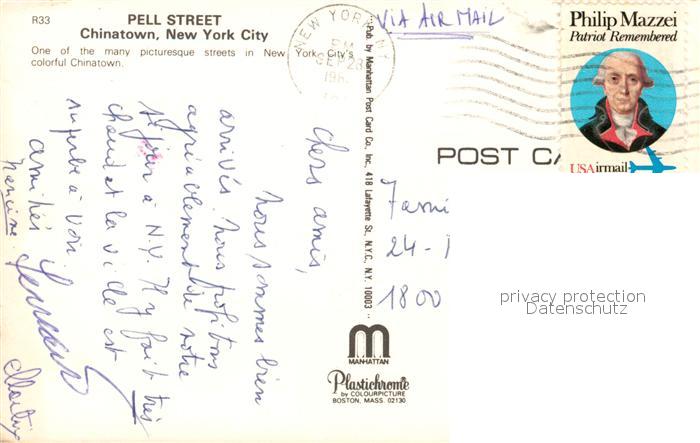 R33
PELL STREET
Chinatown, New York City
One of the many picturesque streets in New York City's
colorful Chinatown.
NEW YORK, NY
PM
SEP 28
VIA AIR MAIL
Philip Mazzei
Patriot Remembered
USAirmail
POST CA
Pub. by Manhattan Post Card Co., Inc., 418 Lafayette St., N.Y.C., N.Y. 10003
chers amis,
nous sommes bien
arrivés. Nous profitons
agréablement de notre
séjour à N.Y. Il y fait très
chaud et la ville est
superbe à voir.
amitiés
Francine
Martin
24-1
1800
privacy protection
Datenschutz
MANHATTAN
Plastichrome
by COLOURPICTURE
BOSTON, MASS. 02130